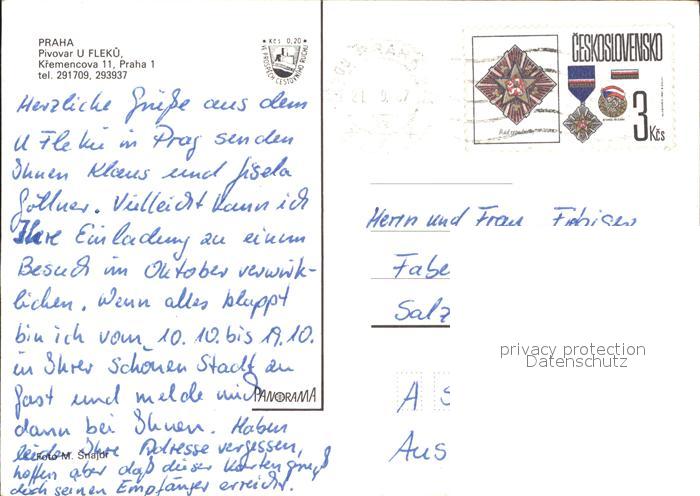 PRAHA
Pivovar U FLEKŮ,
Křemencova 11, Praha 1
tel. 291709, 293937
Kčs 0,20
VE PROSPĚCH CESTOVNÍHO RUCHU
ČESKOSLOVENSKO
3 Kčs
Herzliche Grüße aus dem
U Fleku in Prag senden
Ihnen Klaus und Gisela
Göllner. Vielleicht kann ich
Ihre Einladung zu einem
Besuch im Oktober verwirk-
lichen. Wenn alles klappt
bin ich vom 10.10. bis 19.10.
in Ihrer schönen Stadt zu
Gast und melde mich
dann bei Ihnen. Haben
leider Ihre Adresse vergessen,
hoffen aber daß dieser Kartengruß
doch seinen Empfänger erreicht.
Foto M. Šnajdr
PANORAMA
Herrn und Frau
Fabe
Salz
A
Aus
privacy protection
Datenschutz